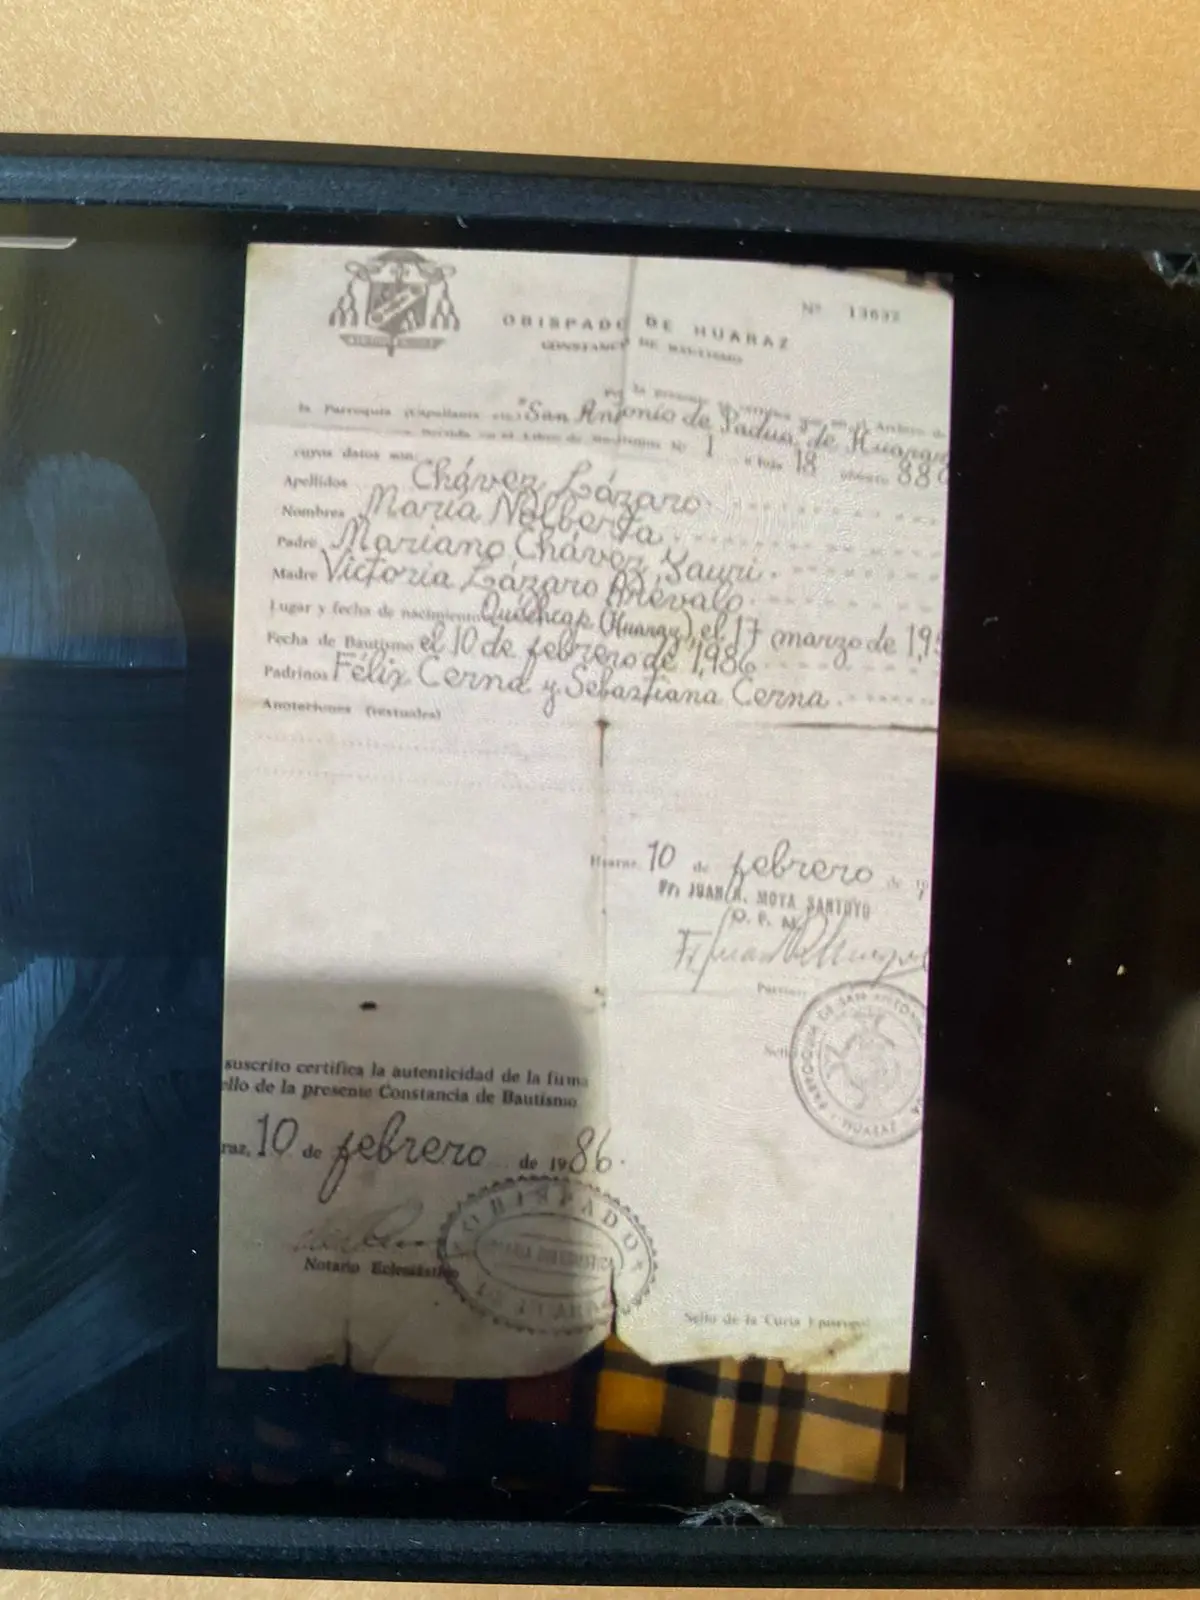 Nº 13632
OBISPADO DE HUARAZ
CONSTANCIA DE BAUTISMO
Por la presente se certifica que en el Archivo de
la Parroquia "San Antonio de Padua, de Huaraz
en el Libro de Bautismos Nº 1 a foja 18 número 88
cuyos datos son:
Apellidos Chávez Lázaro.
Nombres María Nelberta.
Padre Mariano Chávez Yauri.
Madre Victoria Lázaro Arévalo.
Lugar y fecha de nacimiento (Huaraz), el 17 marzo de 19
Fecha de Bautismo el 10 de febrero de 1,986
Padrinos Félix Cerna y Sebastiana Cerna.
Anotaciones (textuales)
Huaraz, 10 de febrero de 19
Fr. JUAN R. MOYA SANTOYO
O. F. M.
Párroco
Sello
PARROQUIA DE SAN ANTONIO
HUARAZ
suscrito certifica la autenticidad de la firma
ello de la presente Constancia de Bautismo
raz, 10 de febrero de 1986.
OBISPADO
Notario Eclesiástico
Sello de la Curia Episcopal